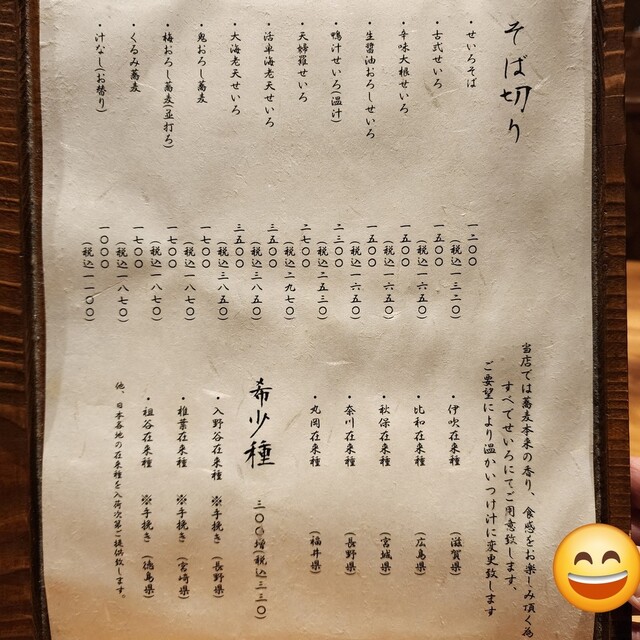 そば切り
・せいろそば
一二〇〇
(税込一三二〇)
・古式せいろ
一五〇〇
(税込一六五〇)
・辛味大根せいろ
一五〇〇
(税込一六五〇)
・生醤油おろしせいろ
一五〇〇
(税込一六五〇)
・鴨汁せいろ(温汁)
二三〇〇
(税込二五三〇)
・天婦羅せいろ
二七〇〇
(税込二九七〇)
・活車海老天せいろ
三五〇〇
(税込三八五〇)
・大海老天せいろ
三五〇〇
(税込三八五〇)
・鬼おろし蕎麦
一七〇〇
(税込一八七〇)
・梅おろし蕎麦(並打ろ)
一七〇〇
(税込一八七〇)
・くるみ蕎麦
一七〇〇
(税込一八七〇)
・汁なし(お替り)
一〇〇〇
(税込一一〇〇)
当店では蕎麦本来の香り、食感をお楽しみ頂く為
すべてせいろにてご用意致します、
ご要望により温かいつけ汁に変更致します
・伊吹在来種 (滋賀県)
・比和在来種 (広島県)
・秋保在来種 (宮城県)
・奈川在来種 (長野県)
・丸岡在来種 (福井県)
希少種 三〇〇増(税込三三〇)
・入野谷在来種 ※手挽き (長野県)
・椎葉在来種 ※手挽き (宮崎県)
・祖谷在来種 ※手挽き (徳島県)
他、日本各地の在来種を入荷次第ご提供致します。